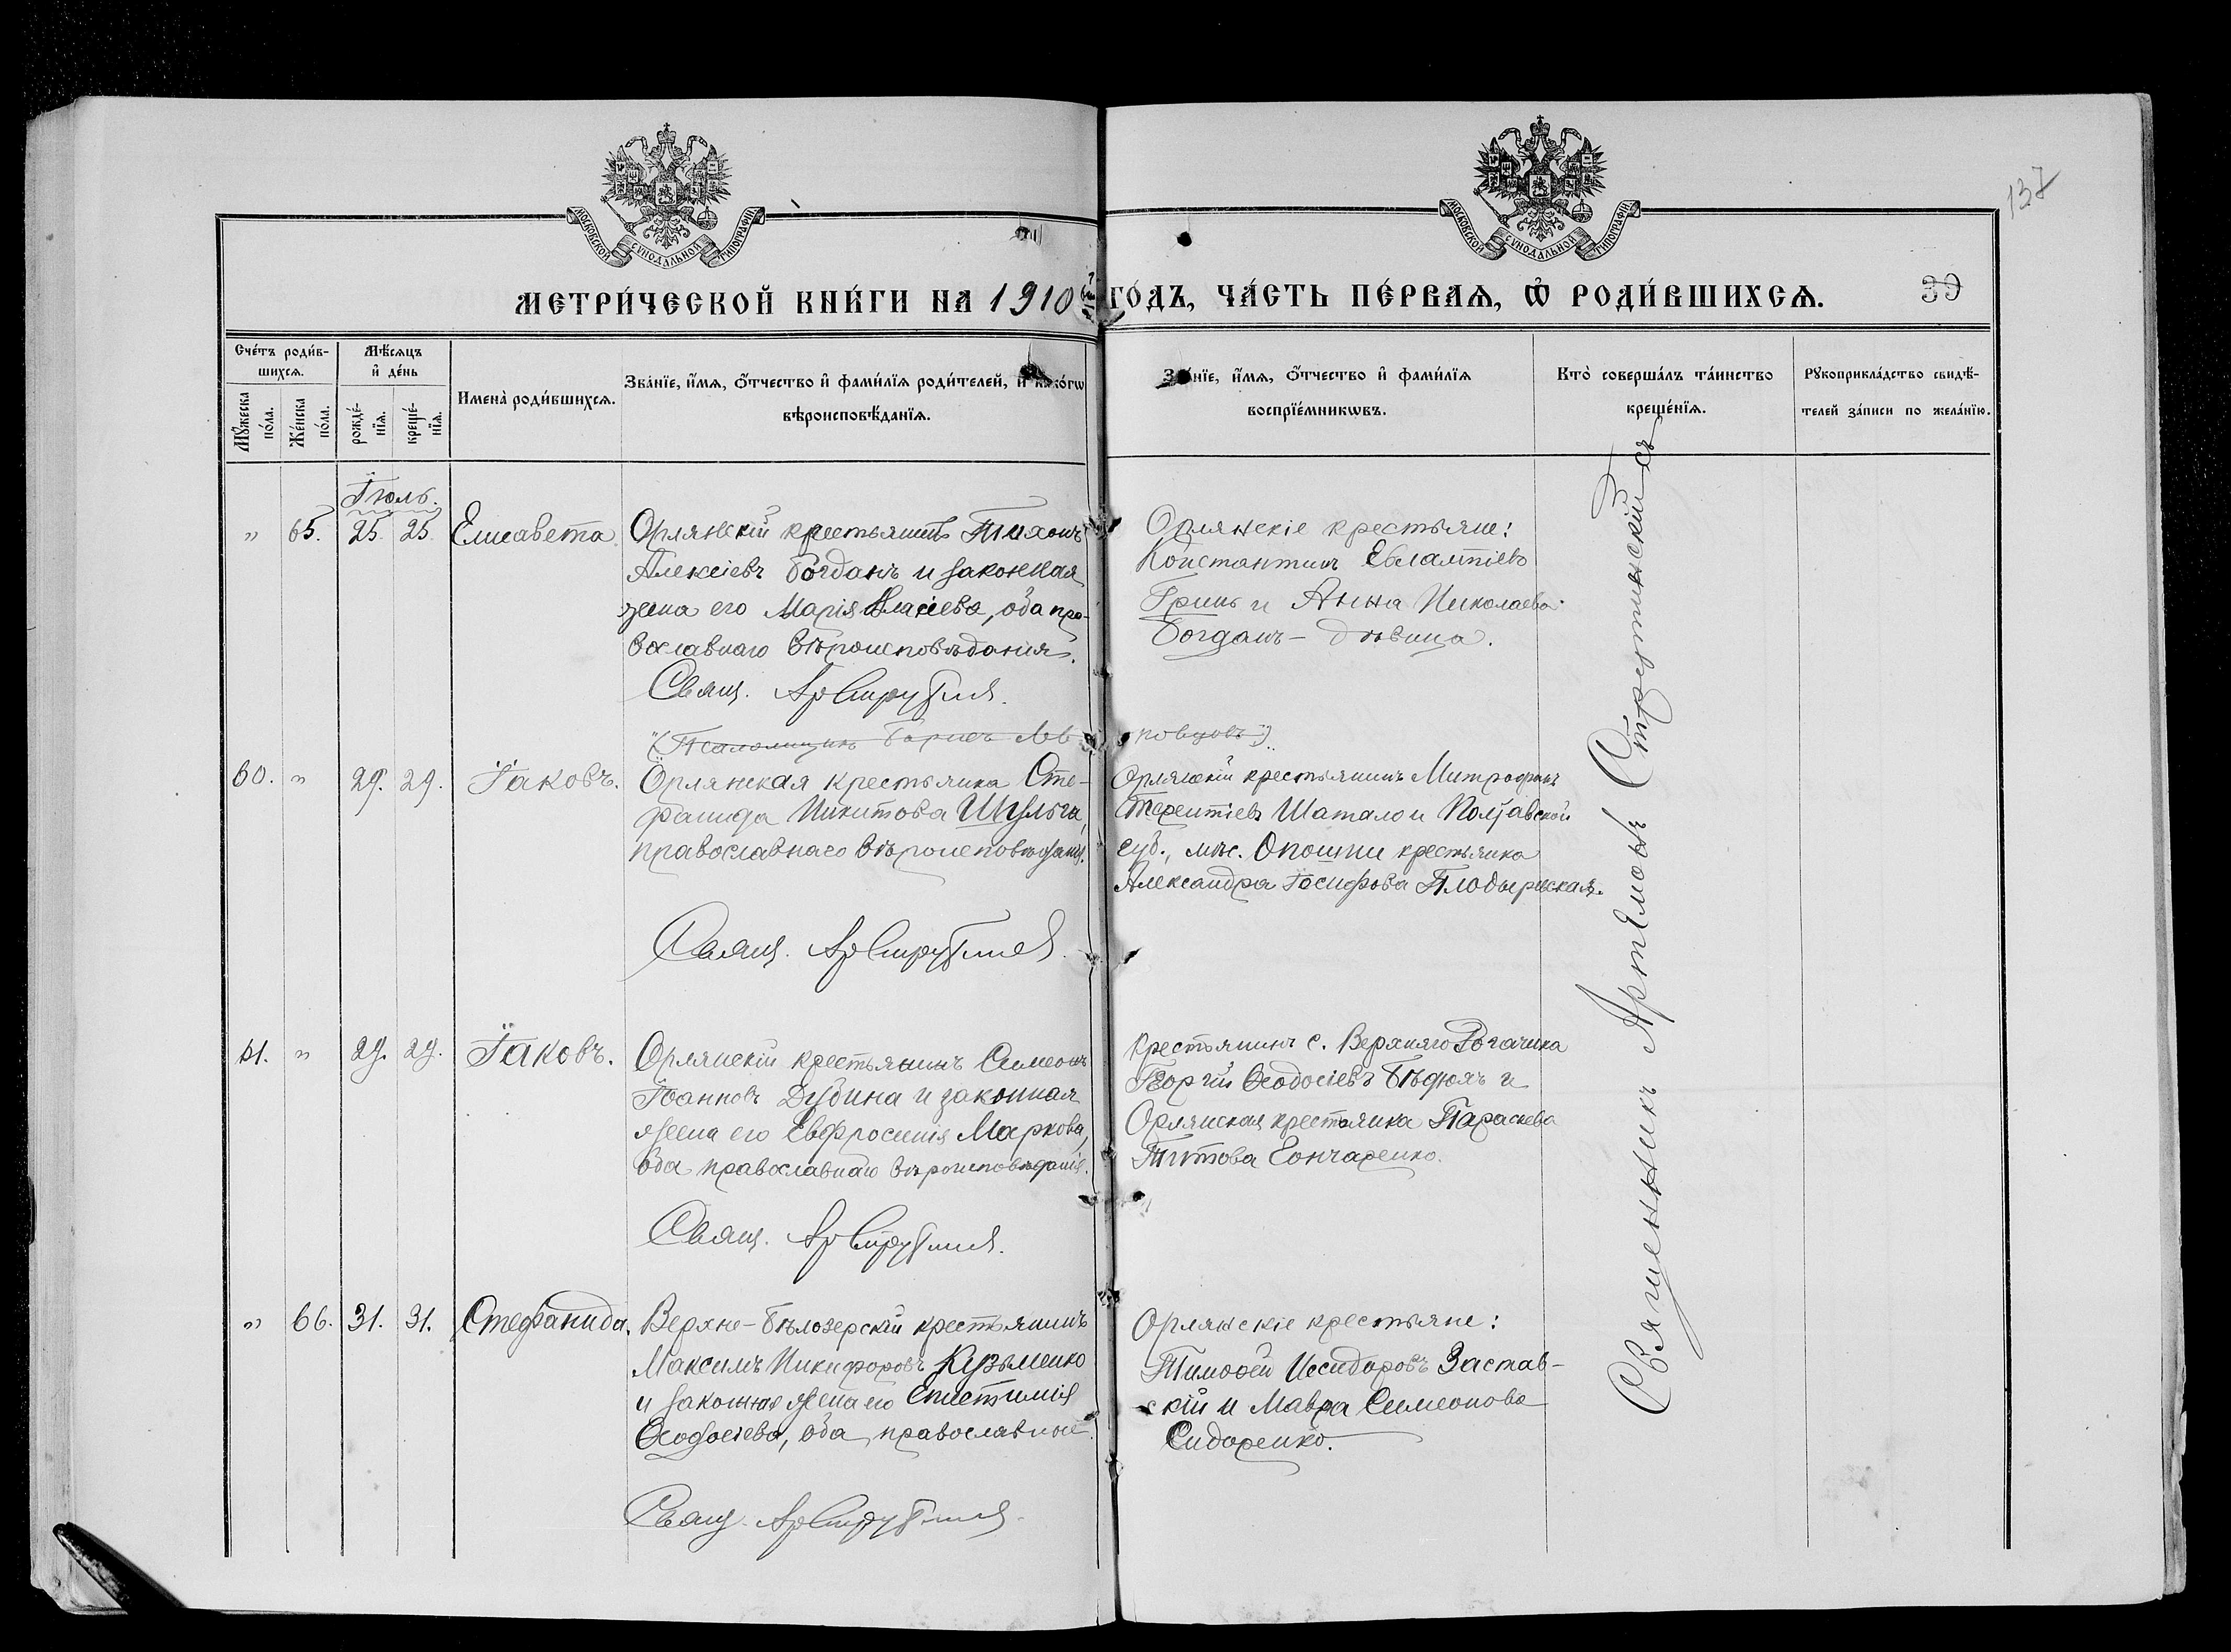 МОСКОВСКОЙ СѴНОДАЛЬНОЙ ТИПОГРАФІИ
МОСКОВСКОЙ СѴНОДАЛЬНОЙ ТИПОГРАФІИ
137
МЕТРИ́ЧЕСКОЙ КНИ́ГИ НА 1910 ГО́ДЪ, ЧА́СТЬ ПЕ́РВАѦ, Ѽ РОДИ́ВШИХСѦ.
39
Сче́тъ роди́в-
шихсѧ.
Мꙋ́жеска по́ла.
Же́нска по́ла.
Мѣ́сѧцъ
и҆ де́нь
рожде́-
нїѧ.
креще́-
нїѧ.
Имена̀ роди́вшихсѧ.
Зва́нїе, и҆́мѧ, ѻ҆́тчество и҆ фами́лїѧ роди́телей, и҆ како́гѡ
вѣроисповѣ́данїѧ.
Зва́нїе, и҆́мѧ, ѻ҆́тчество и҆ фами́лїѧ
воспрїе́мникѡвъ.
Кто̀ соверша́лъ та́инство
креще́нїѧ.
Рꙋкоприкла́дство свидѣ́-
телей за́писи по жела́нїю.
Іюль.
" 65. 25. 25. Елисавета.
Орлянскій крестьянинъ Тихонъ
Алексіевъ Богданъ и законная
жена его Марія Власіева, оба пра-
вославнаго вѣроисповѣданія.
Свящ. Ар Стрѣтинскій
Орлянскіе крестьяне:
Константинъ Евлампіевъ
Гринь и Анна Николаева
Богданъ - дѣвица.
(Псаломщикъ Борисъ
60. " 29. 29. Іаковъ.
Орлянская крестьянка Сте-
фанида Никитова Шульга,
православнаго вѣроисповѣданія.
Свящ. Ар Стрѣтинскій
Орлянскій крестьянинъ Митрофанъ
Терентіевъ Шатало и Полтавской
губ., мѣс. Опошни крестьянка
Александра Іосифова
61. " 29. 29. Іаковъ.
Орлянскій крестьянинъ Симеонъ
Іоанновъ Дубина и законная
жена его Евфросинія Маркова,
оба православнаго вѣроисповѣданія.
Свящ. Ар Стрѣтинскій
Крестьянинъ с. Верхняго Рогачика
Георгій Ѳеодосіевъ Бѣдюхъ и
Орлянская крестьянка Параскева
Титова Гончаренко.
" 66. 31. 31. Стефанида.
Верхне-Бѣлозерскій крестьянинъ
Максимъ Никифоровъ Кузьменко
и законная жена его Епистимія
Ѳеодосіева, оба православные.
Свящ. Ар Стрѣтинскій
Орлянскіе крестьяне:
Тимоѳей Исидоровъ Застав-
скій и Мавра Симеонова
Сидоренко.
Священникъ Артемонъ Стрѣтинскій